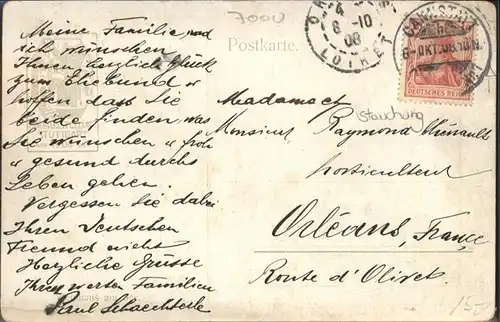 7000
Postkarte.
Meine Familie und
ich wünschen
Ihnen herzlich Glück
zum Ehebund u
hoffen dass Sie
beide finden was
Sie wünschen u froh
u gesund durchs
Leben gehen.
Vergessen Sie dabei
Ihren Deutschen
Freund nicht
Herzliche Grüsse
Ihren werten Familien
Paul Schaechterle
8 -10
08
LOIRET
CANNSTATT
DEUTSCHES REICH
Stauchung
Madame et
Monsieur Raymond
horticulteur
Orléans, France
Route d'Olivet.